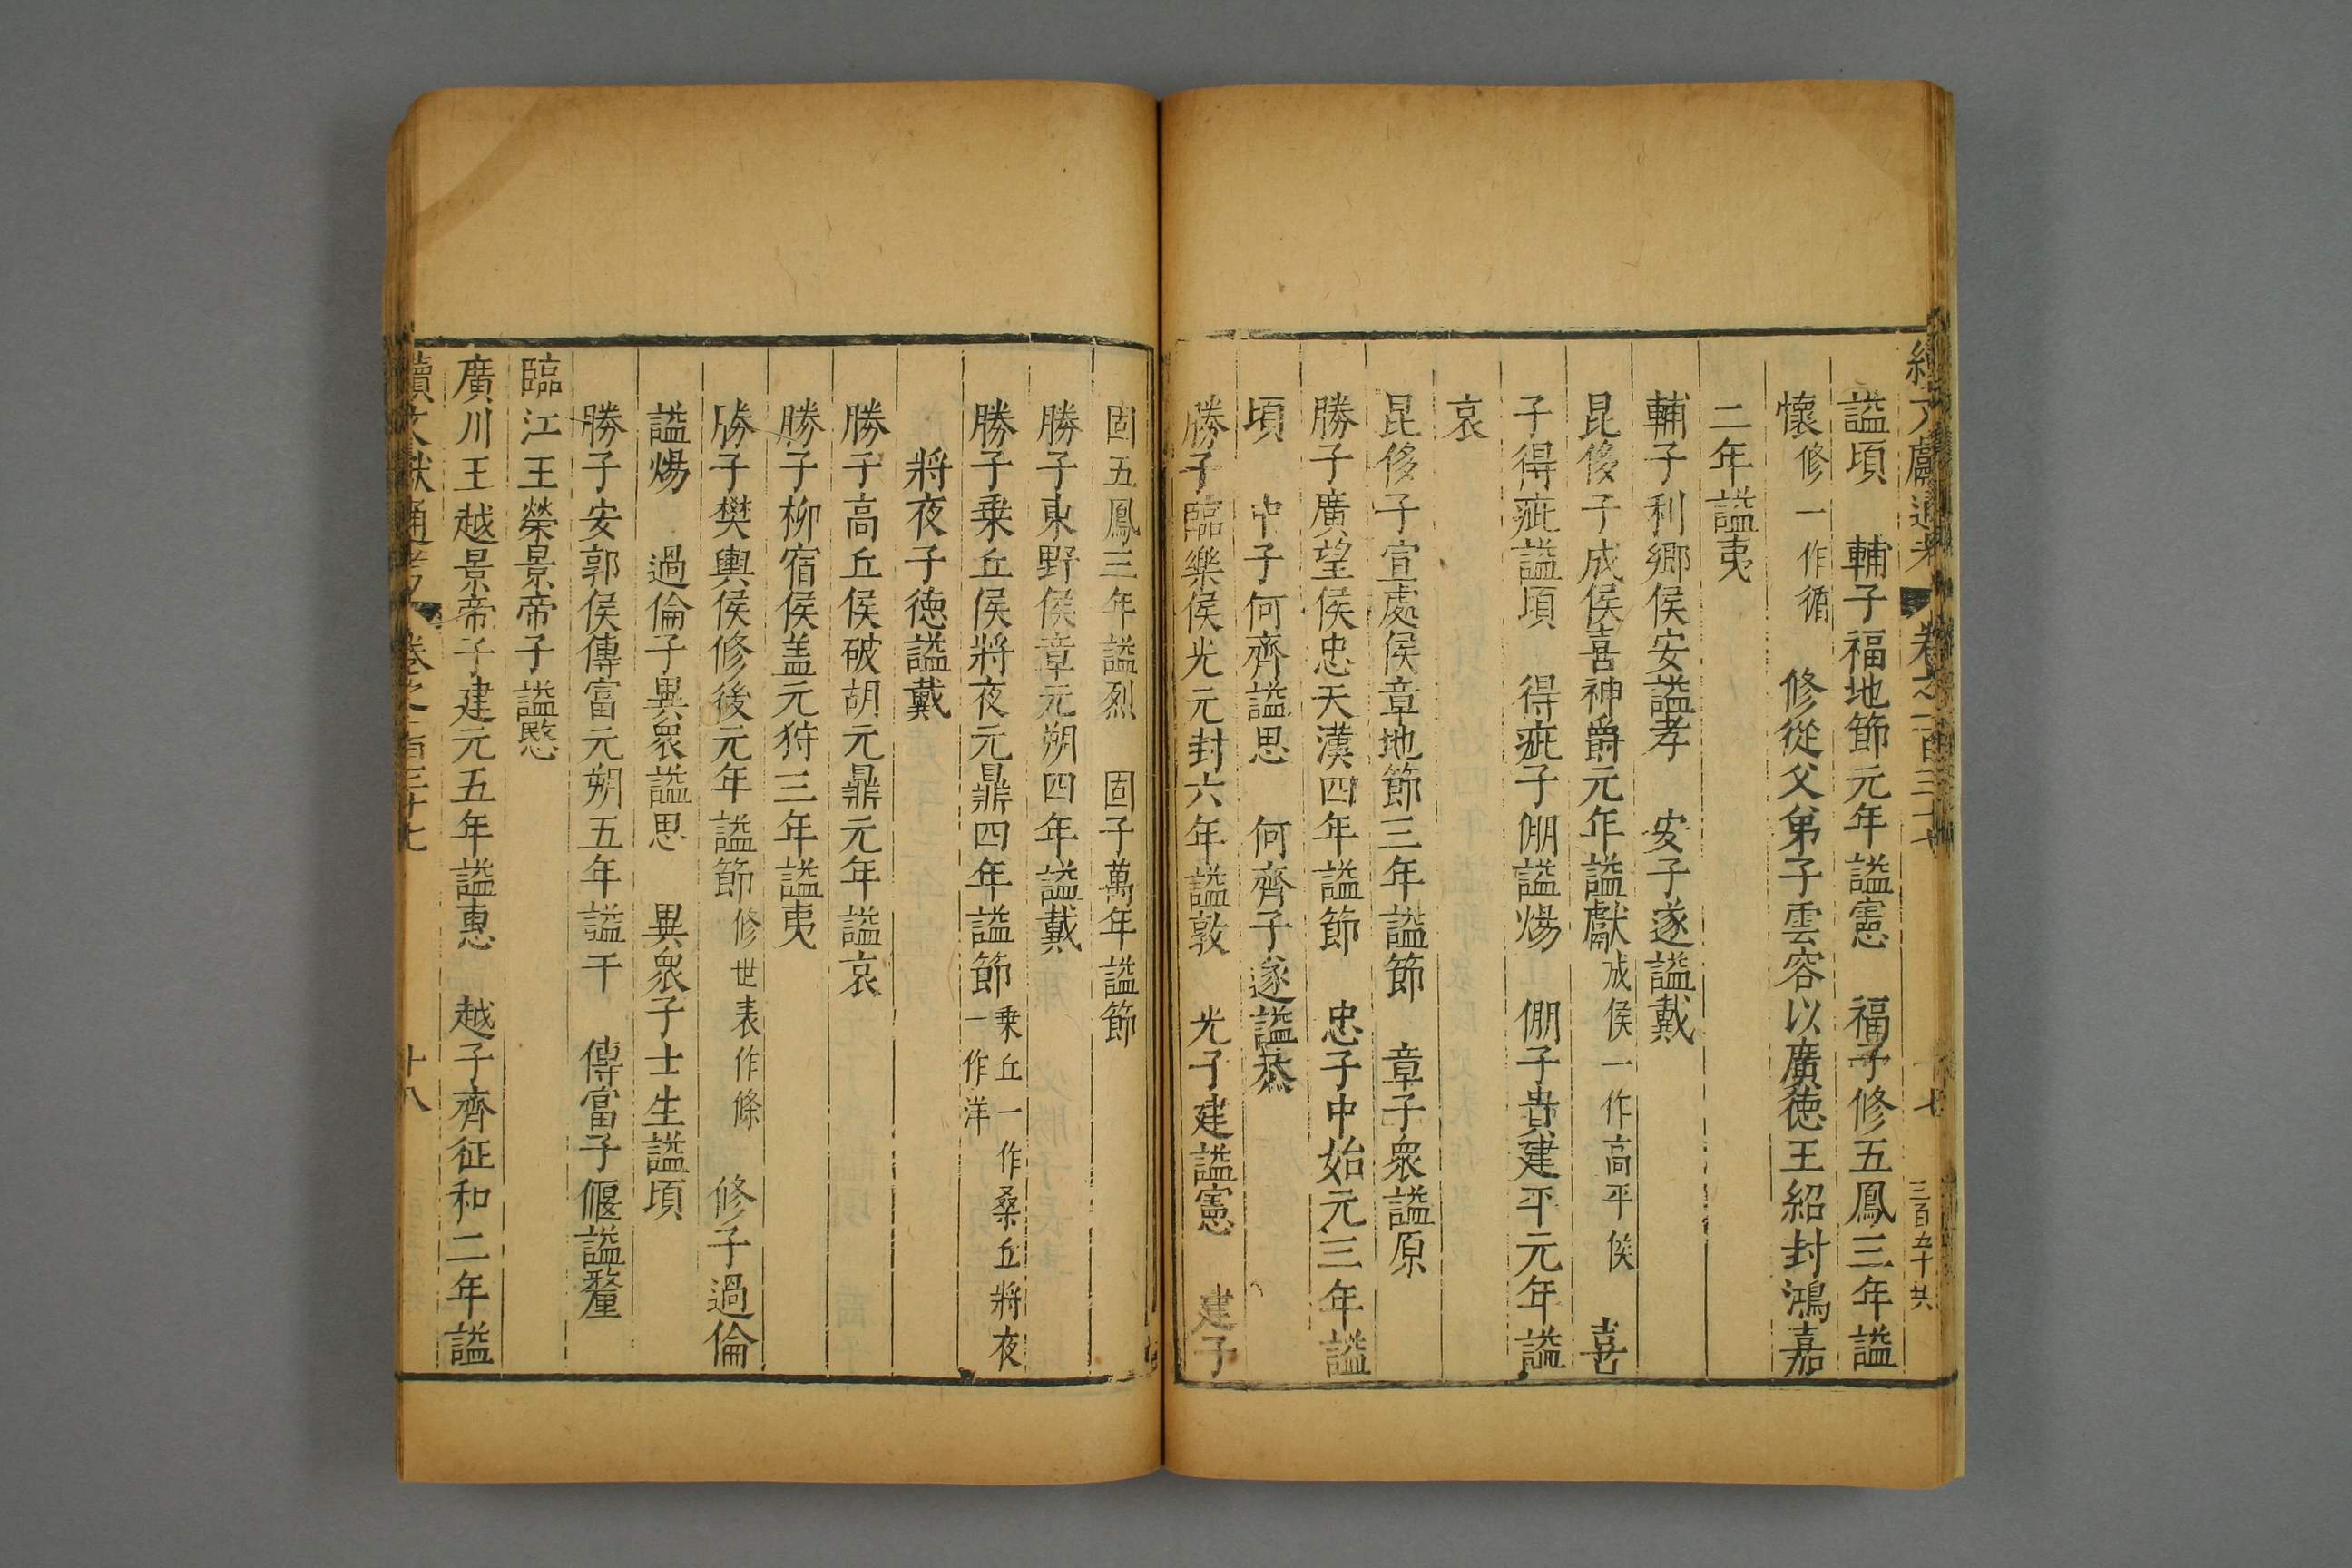 續文獻通考 卷之一百三十七 十七 三百五十
謚頃 輔子福地節元年謚憲 福子修五鳳三年謚
懷修一作循 修從父弟子雲容以廣德王紹封鴻嘉
二年謚夷
輔子利鄉侯安謚孝 安子遂謚戴
昆侈子成侯喜神爵元年謚獻成侯一作高平侯 喜
子得疵謚頃 得疵子倗謚煬 倗子貴建平元年謚
哀
昆侈子宣處侯章地節三年謚節 章子衆謚原
勝子廣望侯忠天漢四年謚節 忠子中始元三年謚
頃 中子何齊謚思 何齊子遂謚恭
勝子臨樂侯光元封六年謚敦 光子建謚憲 建子
固五鳳三年謚烈 固子萬年謚節
勝子東野侯章元朔四年謚戴
勝子乗丘侯將夜元鼎四年謚節乗丘一作桑丘將夜
一作洋
將夜子德謚戴
勝子高丘侯破胡元鼎元年謚哀
勝子柳宿侯盖元狩三年謚夷
勝子樊輿侯修後元年謚節修世表作條 修子過倫
謚煬 過倫子異衆謚思 異衆子士生謚頃
勝子安郭侯傳富元朔五年謚干 傳富子偃謚釐
臨江王榮景帝子謚愍
廣川王越景帝子建元五年謚惠 越子齊征和二年謚
續文獻通考 卷之一百三十七 十八